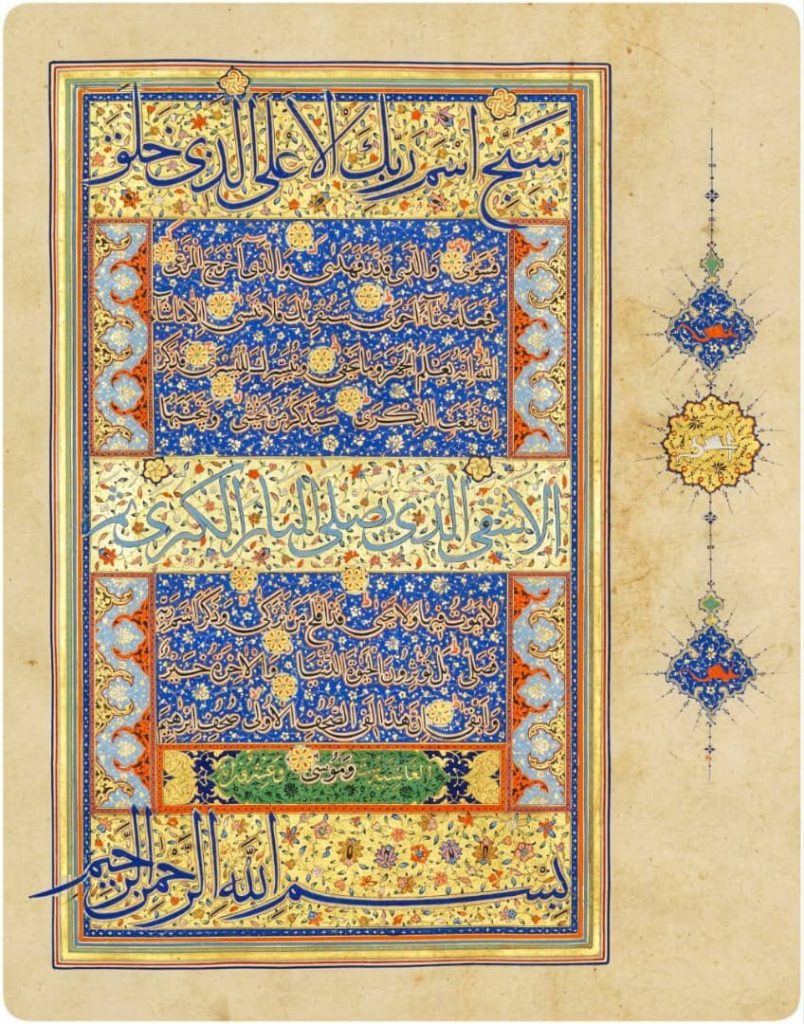 سَبِّحِ اسْمَ رَبِّكَ الْاَعْلَى الَّذى خَلَقَ
فَسَوّى وَالَّذى قَدَّرَ فَهَدى وَالَّذى اَخْرَجَ الْمَرْعى
فَجَعَلَهُ غُثَاءً اَحْوى سَنُقْرِئُكَ فَلا تَنْسى اِلّا ماشَاءَ
اللهُ اِنَّهُ يَعْلَمُ الْجَهْرَ وَما يَخْفى وَنُيَسِّرُكَ لِلْيُسْرى فَذَكِّرْ
اِنْ نَفَعَتِ الذِّكْرى سَيَذَّكَّرُ مَنْ يَخْشى وَيَتَجَنَّبُهَا
الْاَشْقَى الَّذى يَصْلَى النَّارَ الْكُبْرى ثُمَّ
لا يَمُوتُ فيها وَلا يَحْيى قَدْ اَفْلَحَ مَنْ تَزَكّى وَذَكَرَ اسْمَ رَبِّه
فَصَلّى بَلْ تُؤْثِرُونَ الْحَيوةَ الدُّنْيا وَالْاخِرَةُ خَيْرٌ
وَاَبْقى اِنَّ هذا لَفِى الصُّحُفِ الْاُولى صُحُفِ اِبْرهيمَ
الغاشية وَمُوسى
بِسْمِ اللهِ الرَّحْمنِ الرَّحيمِ